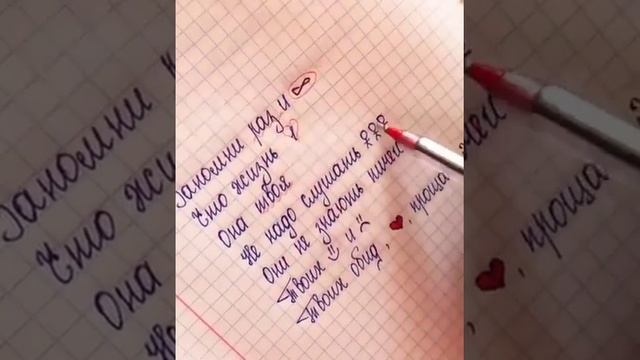 Запомни раз и ∞
Что жизнь 1
Она твоя
Не надо слушать ♀♀♀
Они не знають
Твоих ☺ и ☹
Твоих обид, ❤, проща